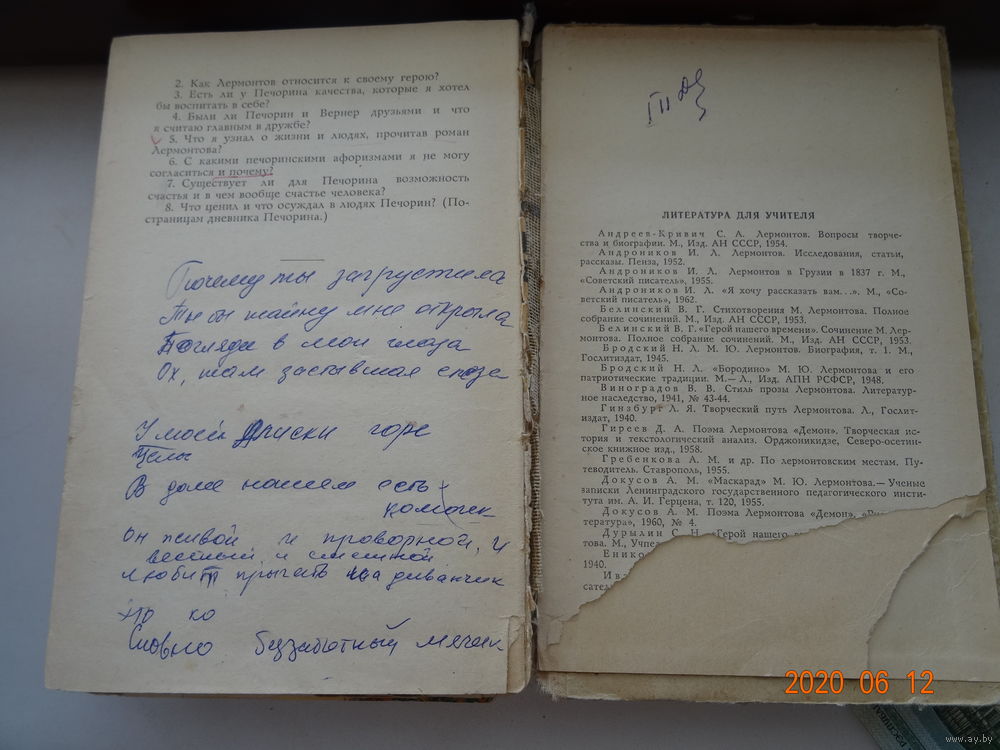 2. Как Лермонтов относится к своему герою?
3. Есть ли у Печорина качества, которые я хотел
бы воспитать в себе?
4. Были ли Печорин и Вернер друзьями и что
я считаю главным в дружбе?
5. Что я узнал о жизни и людях, прочитав роман
Лермонтова?
6. С какими печоринскими афоризмами я не могу
согласиться и почему?
7. Существует ли для Печорина возможность
счастья и в чем вообще счастье человека?
8. Что ценил и что осуждал в людях Печорин? (По-
страницам дневника Печорина.)
Почему ты загрустила
Ты бы тайну мне открыла
Погляди в мои глаза
Ох, там
У моей горе
Целы
В доме нашем есть
комочек
он живой и проворной, и
веселый и смешной
любит прыгать на диванчик
это ко
Словно беззаботный мячик
ЛИТЕРАТУРА ДЛЯ УЧИТЕЛЯ
Андреев-Кривич С. А. Лермонтов. Вопросы творче-
ства и биографии. М., Изд. АН СССР, 1954.
Андроников И. Л. Лермонтов. Исследования, статьи,
рассказы. Пенза, 1952.
Андроников И. Л. Лермонтов в Грузии в 1837 г. М.,
«Советский писатель», 1955.
Андроников И. Л. «Я хочу рассказать вам...». М., «Со-
ветский писатель», 1962.
Белинский В. Г. Стихотворения М. Лермонтова. Полное
собрание сочинений. М., Изд. АН СССР, 1953.
Белинский В. Г. «Герой нашего времени». Сочинение М. Лер-
монтова. Полное собрание сочинений. М., Изд. АН СССР, 1953.
Бродский Н. Л. М. Ю. Лермонтов. Биография, т. 1. М.,
Гослитиздат, 1945.
Бродский Н. Л. «Бородино» М. Ю. Лермонтова и его
патриотические традиции. М.—Л., Изд. АПН РСФСР, 1948.
Виноградов В. В. Стиль прозы Лермонтова. Литератур-
ное наследство, 1941, № 43-44.
Гинзбург Л. Я. Творческий путь Лермонтова. Л., Гослит-
издат, 1940.
Гиреев Д. А. Поэма Лермонтова «Демон». Творческая ис-
тория и текстологический анализ. Орджоникидзе, Северо-осетин-
ское книжное изд., 1958.
Гребенкова А. М. и др. По лермонтовским местам. Пу-
теводитель. Ставрополь, 1955.
Докусов А. М. «Маскарад» М. Ю. Лермонтова.— Ученые
записки Ленинградского государственного педагогического инсти-
тута им. А. И. Герцена, т. 120, 1955.
Докусов А. М. Поэма Лермонтова «Демон»,
тература», 1960, № 4.
Дурылин С. Н. «Герой нашего
това. М.,
Енико
1940.
Ив
сате
2020 06 12
www.ay.by